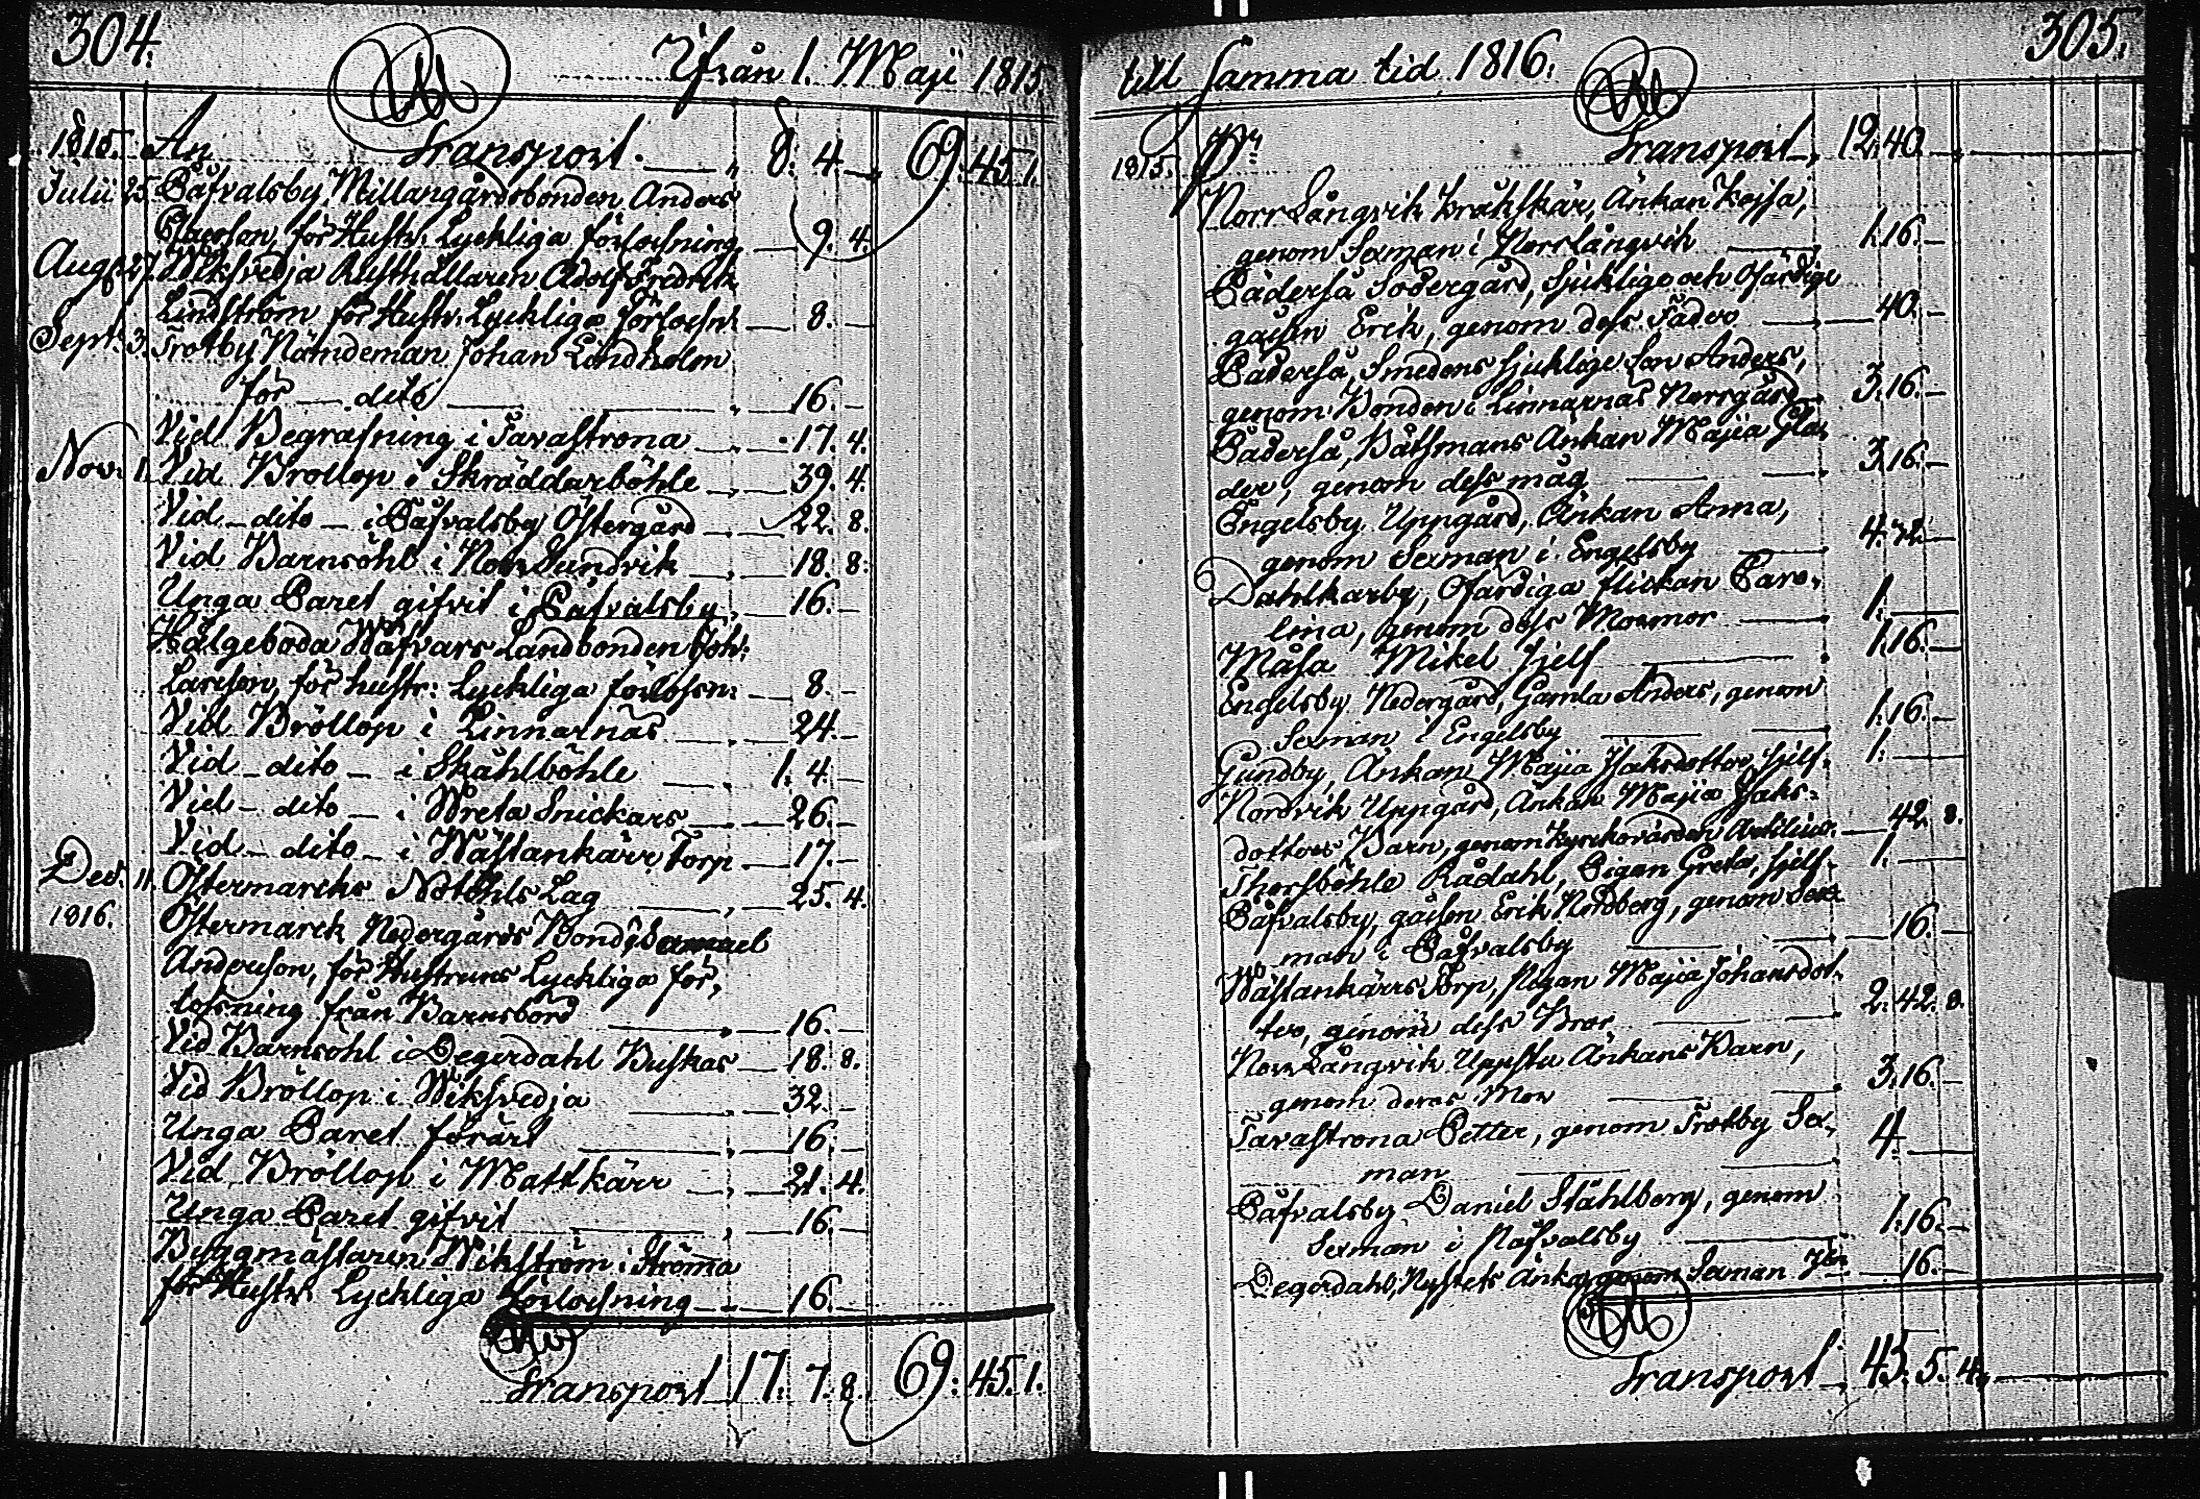 304.
Ifrån 1. Maji 1815.
1815. An Transport. 8. 4. 69. 45. 1.
Julii 25. Påfvalsby Mellangårdsbonden Anders
för Hustr: Lyckliga förlossning 9. 4.
Aug. 27. Wiksvedja Rusthållaren Adolf Fredrik
Lindström för Hustr: Lyckliga förlossn: 8.
Sept. 3. Trotby Nämdeman Johan Lindholm
för dito 16.
Vid Begrafning i Tavastrona 17. 4.
Nov. 1. Vid Bröllop i Skräddarböhle 39. 4.
Vid dito i Påfvalsby Östergård 22. 8.
Vid Barnsöhl i Norr Sundvik 18. 8.
Unga Paret gifvit i Påfvalsby 16.
Helgeboda Wäfvars Landbonden Joh:
Larsson, för hustr: Lyckliga förlossn: 8.
Vid Bröllop i Linnarnäs 24.
Vid dito i Skåhlböhle 1. 4.
Vid dito i Wreta Snickars 26.
Vid dito i Wästankärr Torp 17.
Dec. 11. Östermarcks Notöhls Lag 25. 4.
1816. Östermarck Nedergårds Bond: Samuel
Andersson, för Hustruns Lyckliga för,
lossning från Barnsbörd 16.
Vid Barnsöhl i Degerdahl Buskas 18. 8.
Vid Bröllop i Wiksvedja 32.
Unga Paret förärt 16.
Vid Bröllop i Mattkärr 21. 4.
Unga Paret gifvit 16.
Byggmästaren Wikström i Ströma
för Hustr: Lyckliga förlossning 16.
Transport 17. 7. 8. 69. 45. 1.
305.
till samma tid 1816.
1815. Pr Transport 12. 40.
Norr Långvik Kråkskär, Änkan Kajsa,
genom Sexman i Norrlångvik 1. 16.
Päderså Södergård, Sjuklige och Ofärdige
gåssen Erik, genom dess Fader 40.
Päderså, Smedens sjuklige Son Anders,
genom Bonden i Linnarnäs Norrgård 3. 16.
Pädersså, Båtsmans Änkan Majia Gla,
der, genom dess måg 3. 16.
Engelsby Uppgård, Änkan Anna,
genom Sexman i Engelsby 4. 32.
Dahlkarby, Ofärdiga flickan Caro,
lina, genom dess Mormor 1.
Måsa Mikel Sjelf 1. 16.
Engelsby Nedergård, Gamla Anders, genom
Sexman i Engelsby 1. 16.
Gundby, Änkan Majia Isaksdotter, sjelf. 1.
Nordvik Uppgård, Änkan Majia Isaks:
dotters Barn, genom kyrkovärden 42. 8.
Thorsböhle Rådahl, Pigan Greta, sjelf. 1.
Påfvalsby, gåssen Erik Nordberg, genom Sex
man i Påfvalsby 16.
Wästankärrs Torp, Pigan Majia Johansdot,
ter, genom dess Bror 2. 42. 8.
Norr Långvik Uppstu Änkans Barn,
genom deras Mor 3. 16.
Tavastrona Petter, genom Trotby Sex,
man 4.
Påfvalsby Daniel Ståhlberg, genom
Sexman i Påfvalsby 1. 16.
Degerdahl, Nystets Änka, genom Sexman 16.
Transport 45. 5. 4.